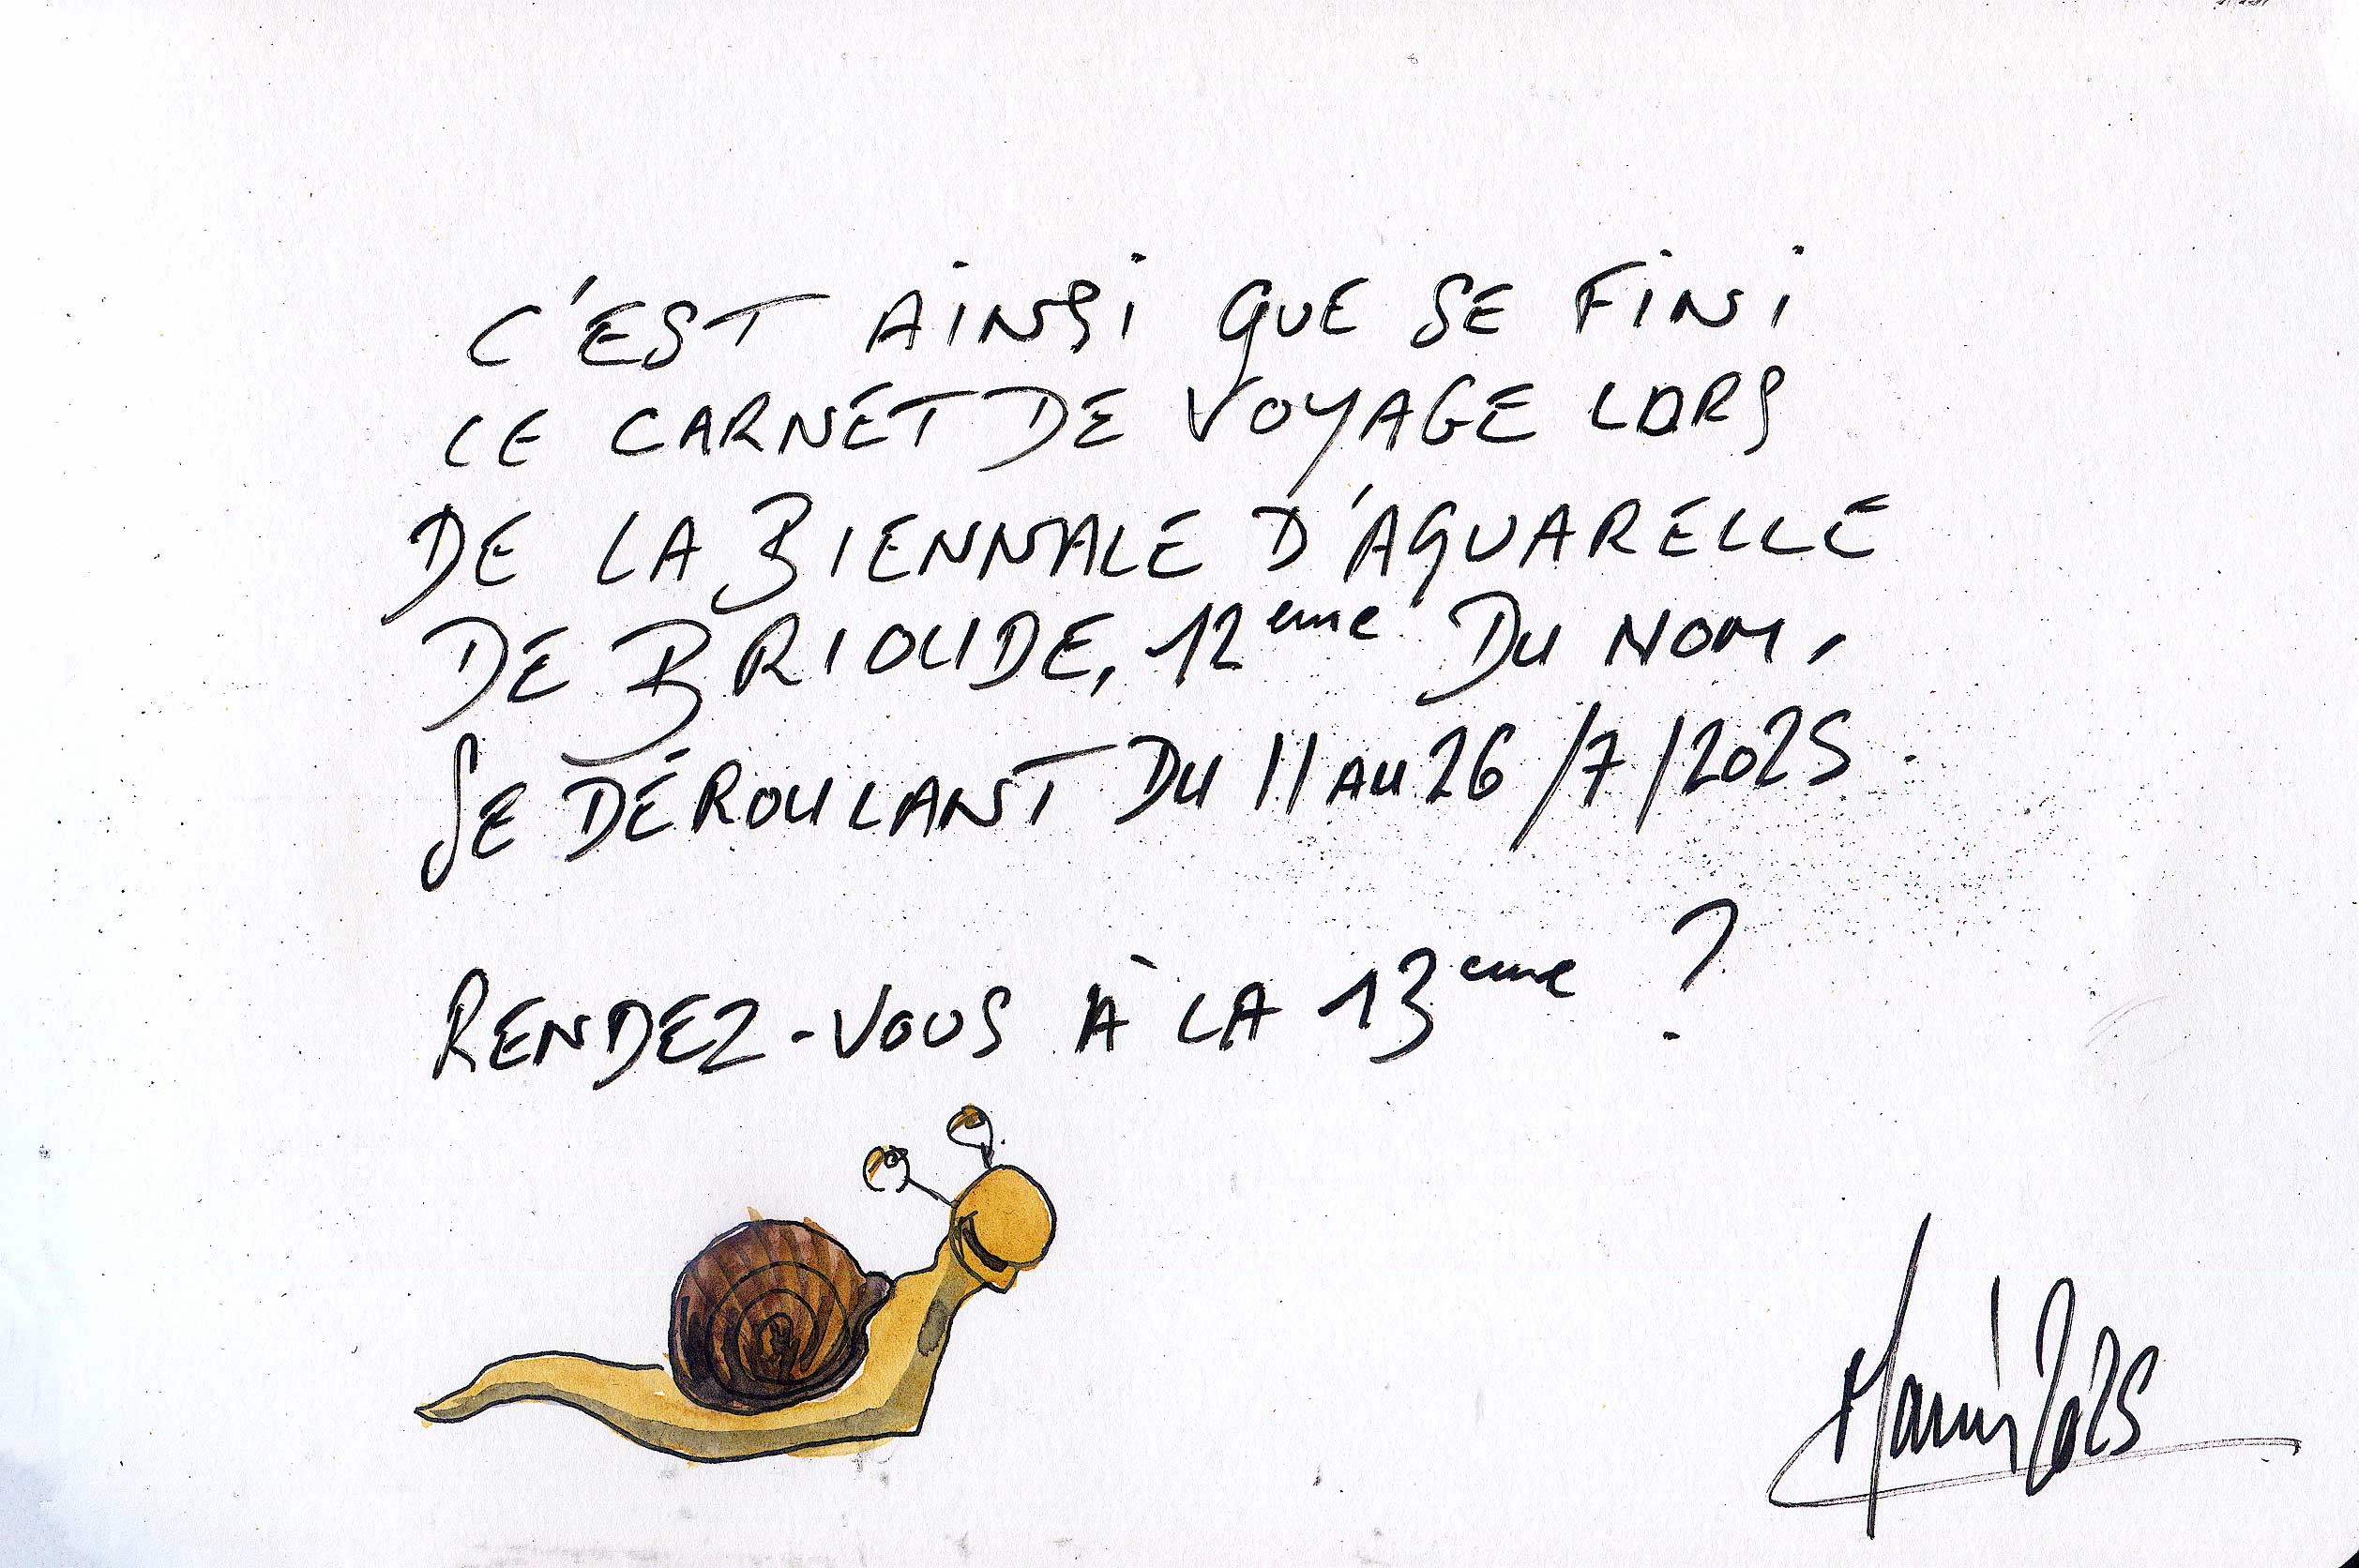 C'EST AINSI QUE SE FINI
LE CARNET DE VOYAGE LORS
DE LA BIENNALE D'AQUARELLE
DE BRIOUDE, 12eme DU NOM,
SE DÉROULANT DU 11 AU 26/7/2025.
RENDEZ-VOUS À LA 13eme ?
2025